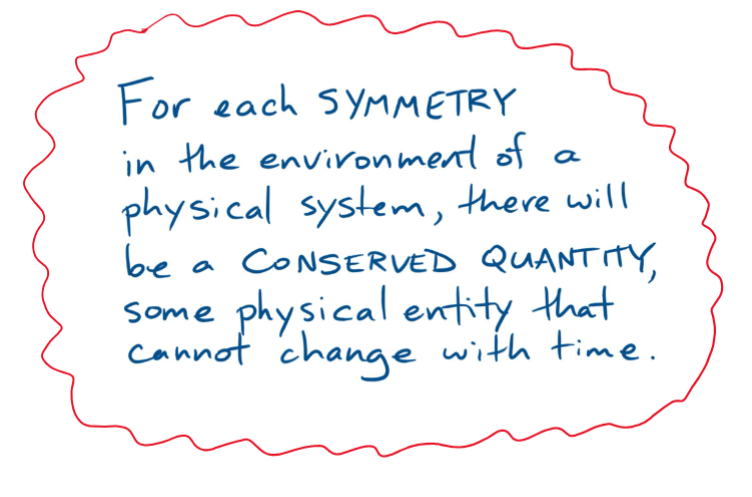 For each SYMMETRY
in the environment of a
physical system, there will
be a CONSERVED QUANTITY,
some physical entity that
cannot change with time.